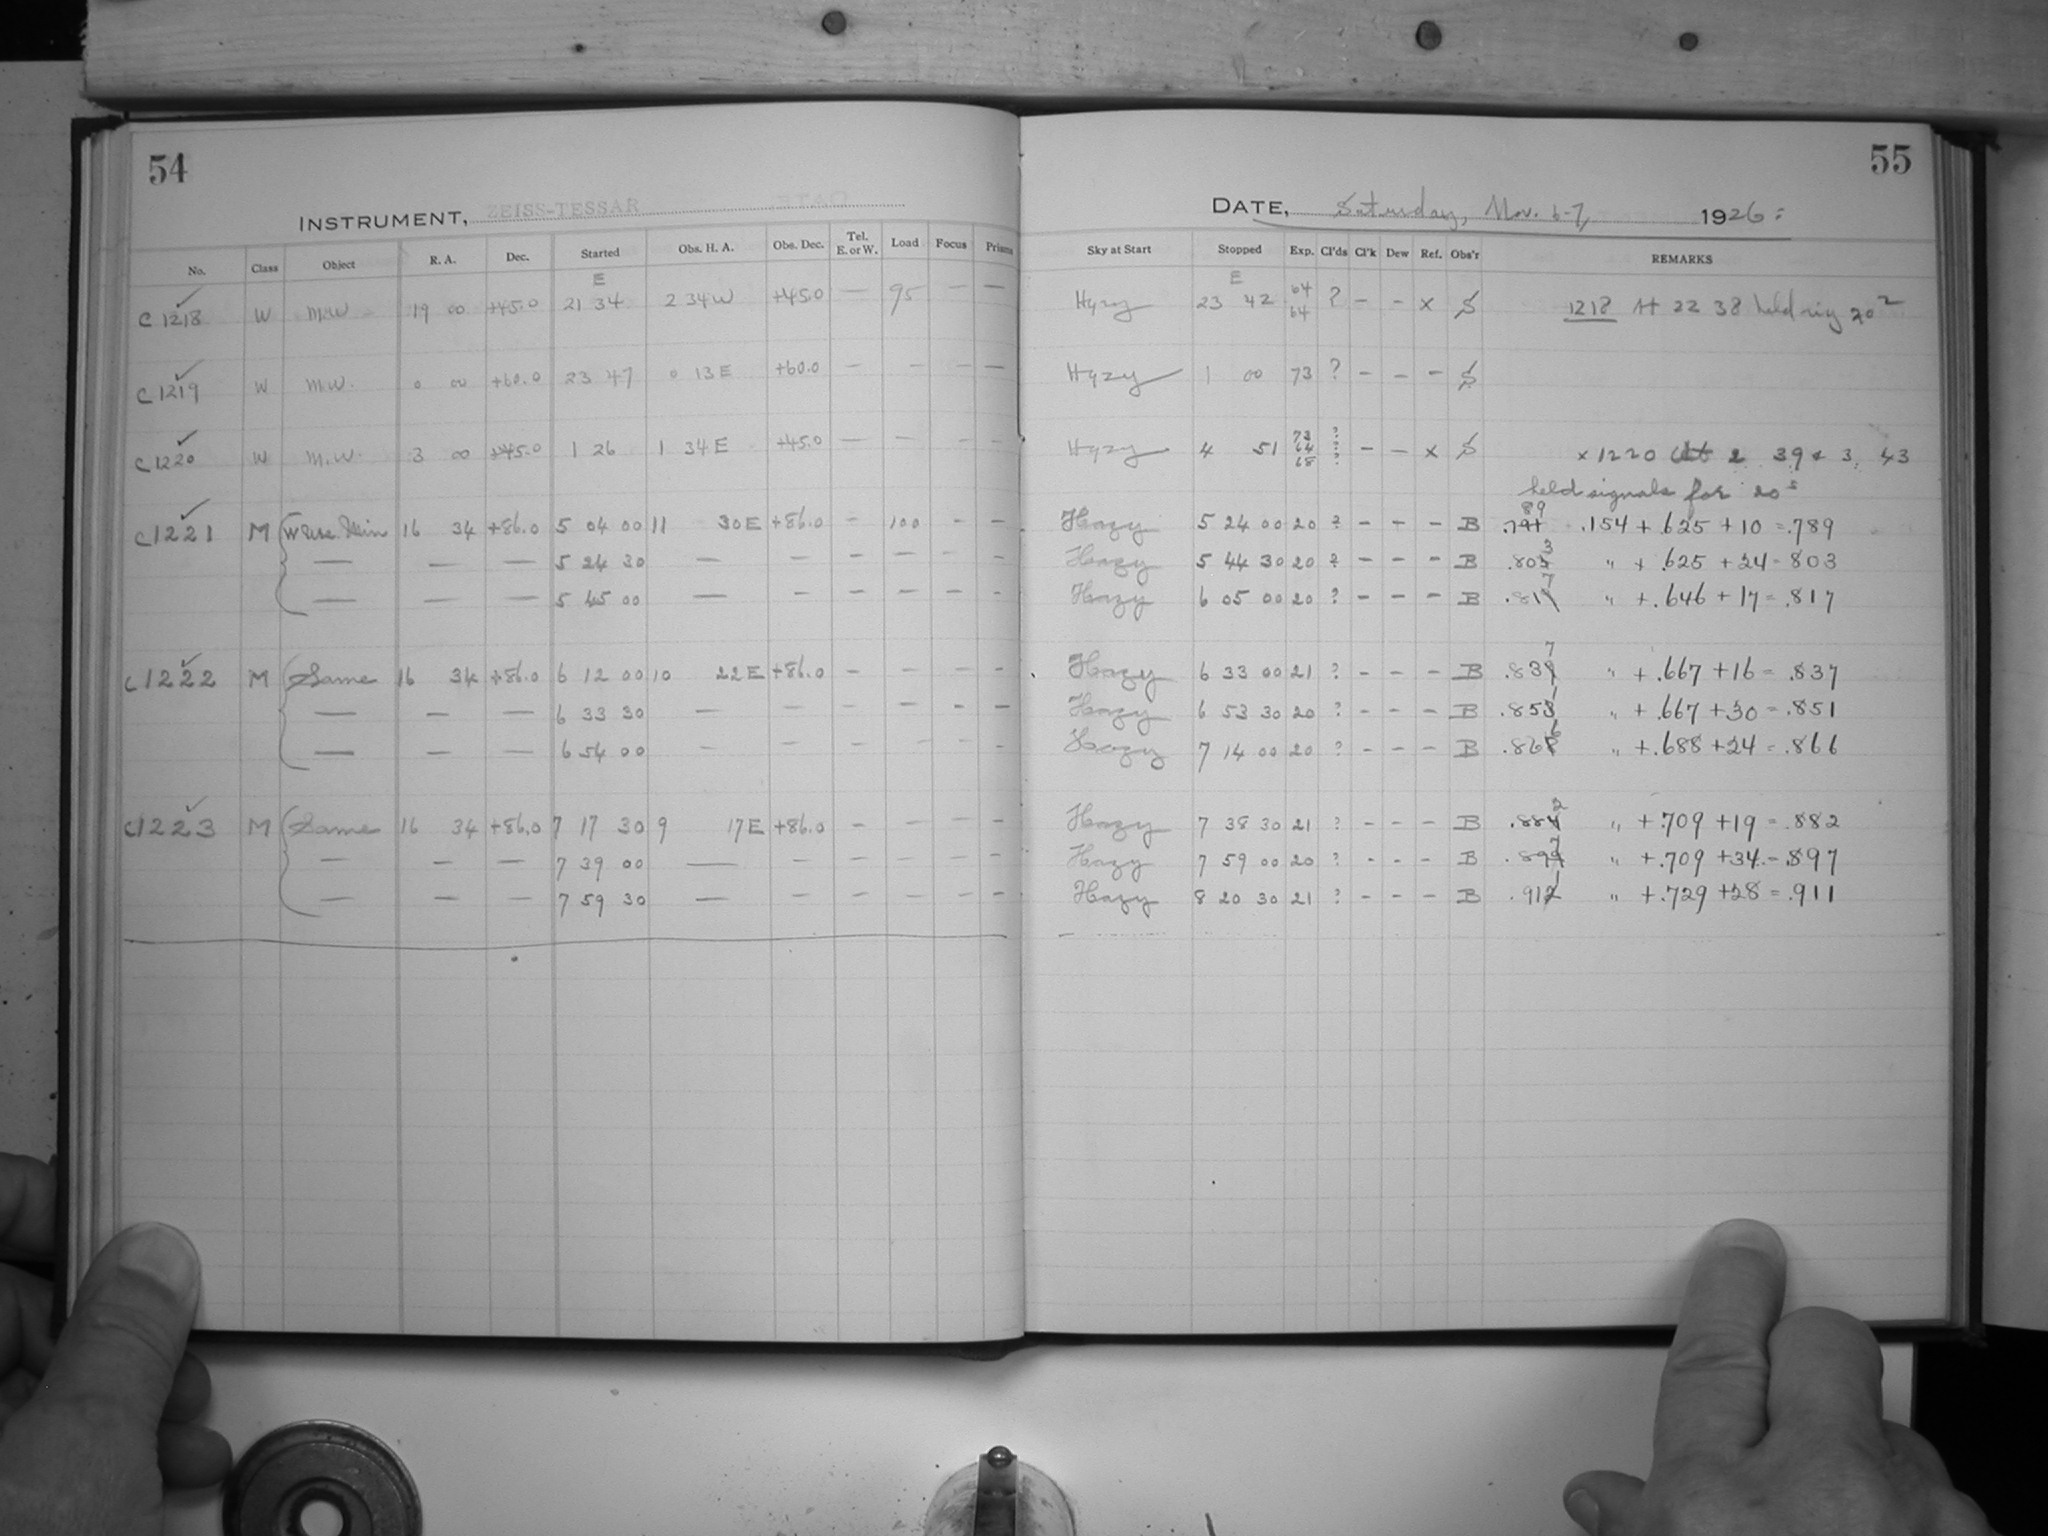 54
INSTRUMENT, ZEISS-TESSAR
No. Class Object R. A. Dec. Started Obs. H. A. Obs. Dec. Tel. E. or W. Load Focus Prisms
E
C 1218 W M.W. 19 00 +45.0 21 34 2 34 W +45.0 — 95 — —
C 1219 W M.W. 0 00 +60.0 23 47 0 13 E +60.0 — — — —
C 1220 W M.W. 3 00 +45.0 1 26 1 34 E +45.0 — — — —
C 1221 M 16 34 +86.0 5 04 00 11 30 E +86.0 — 100 — —
— — — 5 24 30 — — — — — —
— — — 5 45 00 — — — — — —
C 1222 M Same 16 34 +86.0 6 12 00 10 22 E +86.0 — — — —
— — — 6 33 30 — — — — — —
— — — 6 54 00 — — — — — —
C 1223 M Same 16 34 +86.0 7 17 30 9 17 E +86.0 — — — —
— — — 7 39 00 — — — — — —
— — — 7 59 30 — — — — — —
55
DATE, Saturday, Nov. 6-7, 1926
Sky at Start Stopped Exp. Cl'ds Cl'k Dew Ref. Obs'r REMARKS
E
Hazy 23 42 64 64 ? – – x S 1218 At 22 38 held sig 20
Hazy 1 00 73 ? – – – S
Hazy 4 51 73 64 68 ? ? ? – – x S x 1220 At 2 39 & 3 43
held signals for 20 s
Hazy 5 24 00 20 ? – – – B .789 .154 + .625 + 10 = .789
Hazy 5 44 30 20 ? – – – B .803 " + .625 + 24 = 803
Hazy 6 05 00 20 ? – – – B .817 " + .646 + 17 = .817
Hazy 6 33 00 21 ? – – – B .837 " + .667 + 16 = .837
Hazy 6 53 30 20 ? – – – B .851 " + .667 + 30 = .851
Hazy 7 14 00 20 ? – – – B .866 " + .688 + 24 = .866
Hazy 7 38 30 21 ? – – – B .882 " + .709 + 19 = .882
Hazy 7 59 00 20 ? – – – B .897 " + .709 + 34 = .897
Hazy 8 20 30 21 ? – – – B .911 " + .729 + 28 = .911